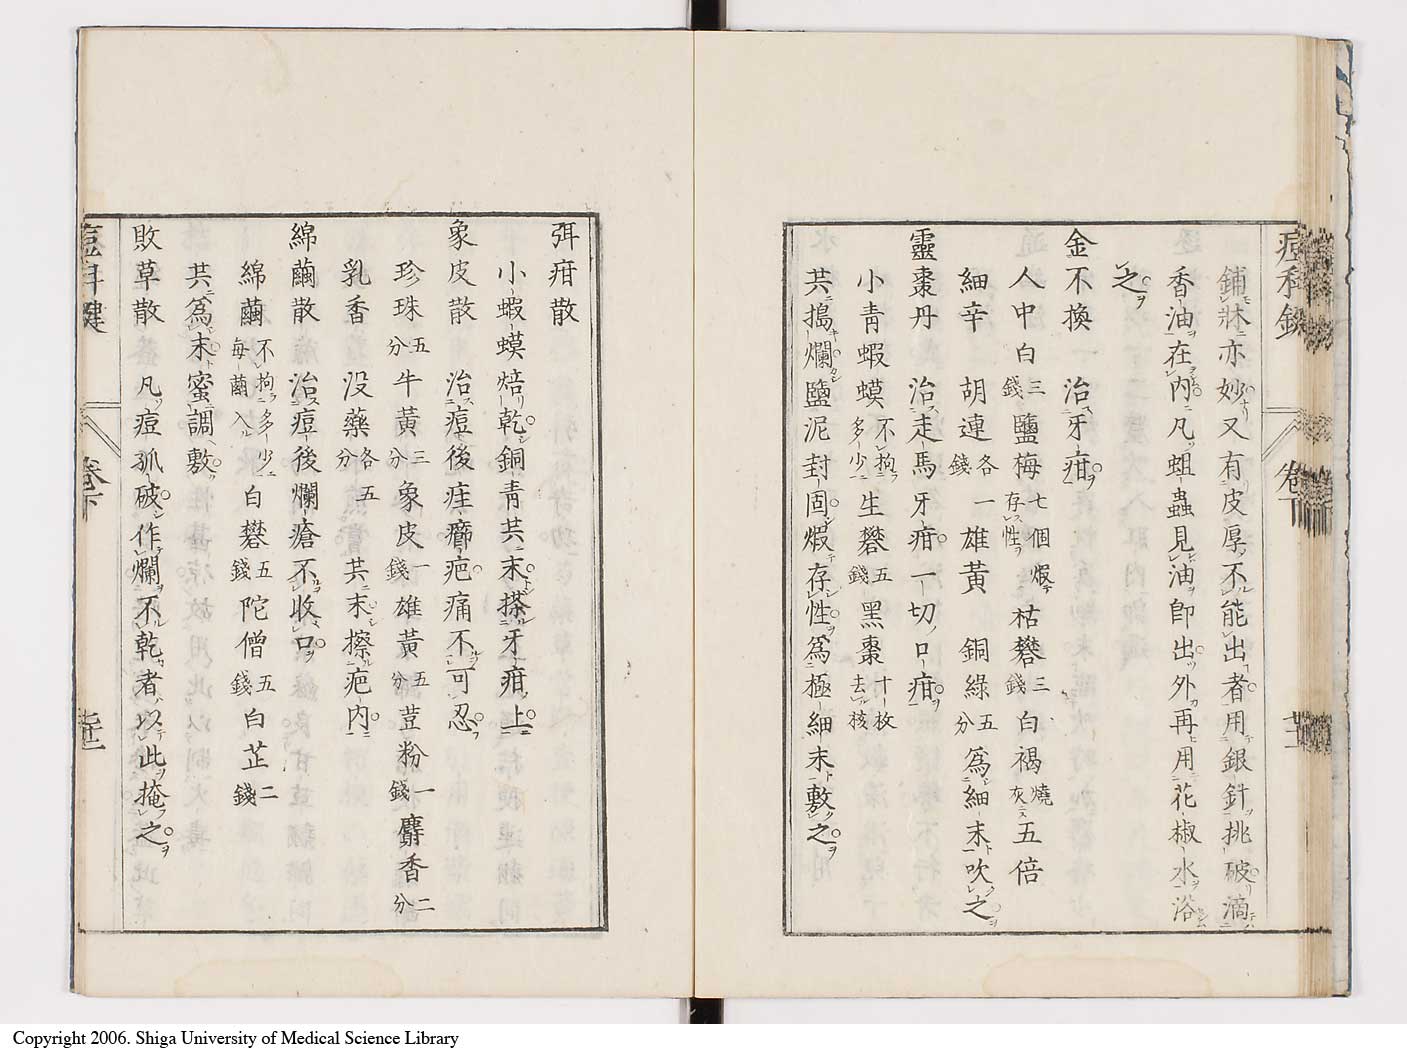 痘科鍵
卷下
鋪牀亦妙又有皮厚不能出者用銀針挑破滴
香油在內凡蛆蟲見油卽出外再用花椒水浴
之
金不換　治牙疳
人中白三錢鹽梅七個煅存性枯礬三錢白褐燒灰五倍
細辛　胡連各一錢　雄黃　銅綠五分爲細末吹之
靈棗丹　治走馬牙疳一切口疳
小青蝦蟆不拘多少生礬五錢黑棗十枚去核
共搗爛鹽泥封固煆存性爲極細末敷之
弭疳散
小蝦蟆焙乾銅青共末搽牙疳上
象皮散　治痘後痘癤疤痛不可忍
珍珠五分牛黃三分象皮一錢雄黃五分荳粉一錢麝香二分
乳香　没藥各五分　共末擦疤內
綿繭散　治痘後爛瘡不收口
綿繭不拘多少每繭入白礬五錢陀僧五錢白芷二錢
共爲末蜜調敷
敗草散　凡痘孤破作爛不乾者以此掩之
痘科鍵
卷下